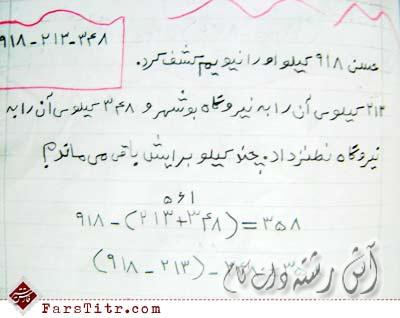 ۹۱۸-۲۱۳-۳۴۸
حسن ۹۱۸ کیلو اورانیویم کشف کرد.
۲۱۳ کیلوی آن را به نیروگاه بوشهر و ۳۴۸ کیلوی آن را به
نیروگاه نطنز داد. چند کیلو برایش باقی می ماند؟
۵۶۱
۹۱۸-(۲۱۳+۳۴۸)=۳۵۸
(۹۱۸-۲۱۳)-۳
آش رشته دات کام
FarsTitr.com